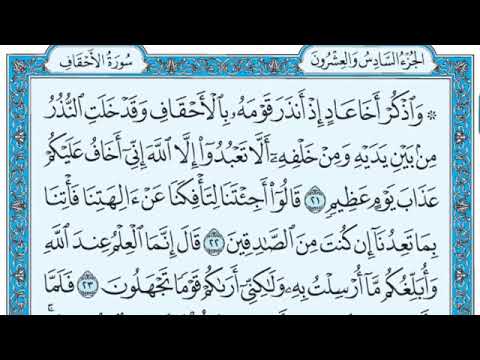 سُورَةُ الْأَحْقَافِ
الجُزْءُ السَّادِسُ وَالعِشْرُونَ
۞ وَٱذْكُرْ أَخَا عَادٍ إِذْ أَنذَرَ قَوْمَهُۥ بِٱلْأَحْقَافِ وَقَدْ خَلَتِ ٱلنُّذُرُ
مِنۢ بَيْنِ يَدَيْهِ وَمِنْ خَلْفِهِۦٓ أَلَّا تَعْبُدُوٓا۟ إِلَّا ٱللَّهَ إِنِّىٓ أَخَافُ عَلَيْكُمْ
عَذَابَ يَوْمٍ عَظِيمٍ ٢١ قَالُوٓا۟ أَجِئْتَنَا لِتَأْفِكَنَا عَنْ ءَالِهَتِنَا فَأْتِنَا
بِمَا تَعِدُنَآ إِن كُنتَ مِنَ ٱلصَّٰدِقِينَ ٢٢ قَالَ إِنَّمَا ٱلْعِلْمُ عِندَ ٱللَّهِ
وَأُبَلِّغُكُم مَّآ أُرْسِلْتُ بِهِۦ وَلَٰكِنِّىٓ أَرَىٰكُمْ قَوْمًا تَجْهَلُونَ ٢٣ فَلَمَّا